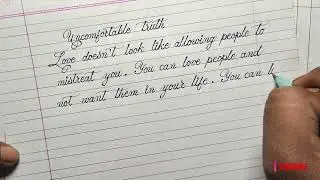 Uncomfortable truth
Love doesn't look like allowing people to
mistreat you. You can love people and
not want them in your life. You can